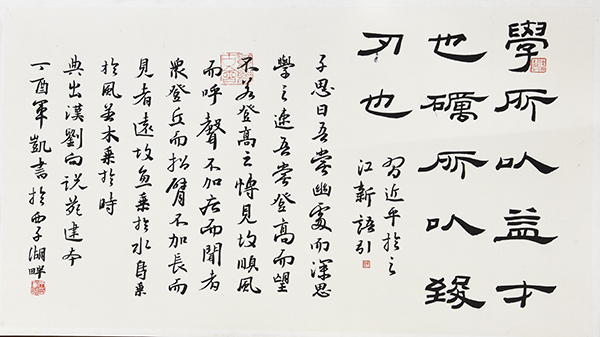 學所以益才
也礪所以緻
刃也
習近平於之
江新語引
子思曰吾嘗幽處而深思
學之速吾嘗登高而望
不若登高之博見故順風
而呼聲不加疾而聞者
衆登丘而招臂不加長而
見者遠故魚乘於水鳥乘
於風草木乘於時
典出漢劉向說苑建本
丁酉軍凱書於西子湖畔